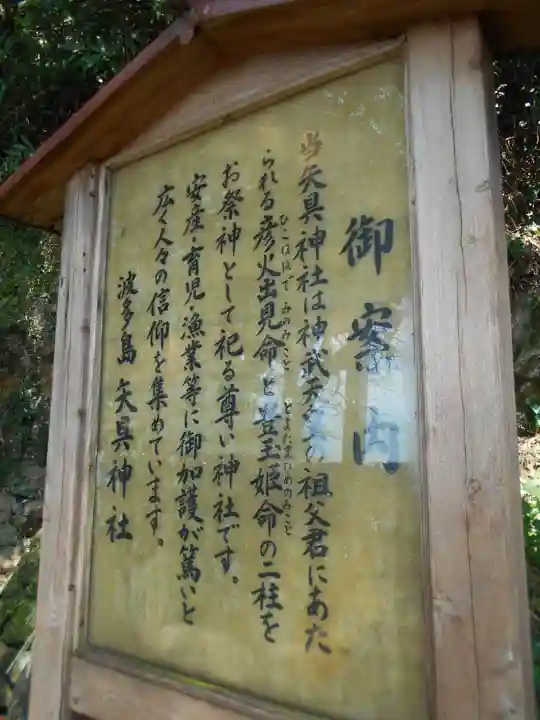 御案内
当矢具神社は神武天皇の祖父君にあた
られる彦火出見命と豊玉姫命の二柱を
ひこほほで みのみこと とよたまひめのみこと
お祭神として祀る尊い神社です。
安産・育児・漁業等に御加護が篤いと
広く人々の信仰を集めています。
波多島 矢具神社